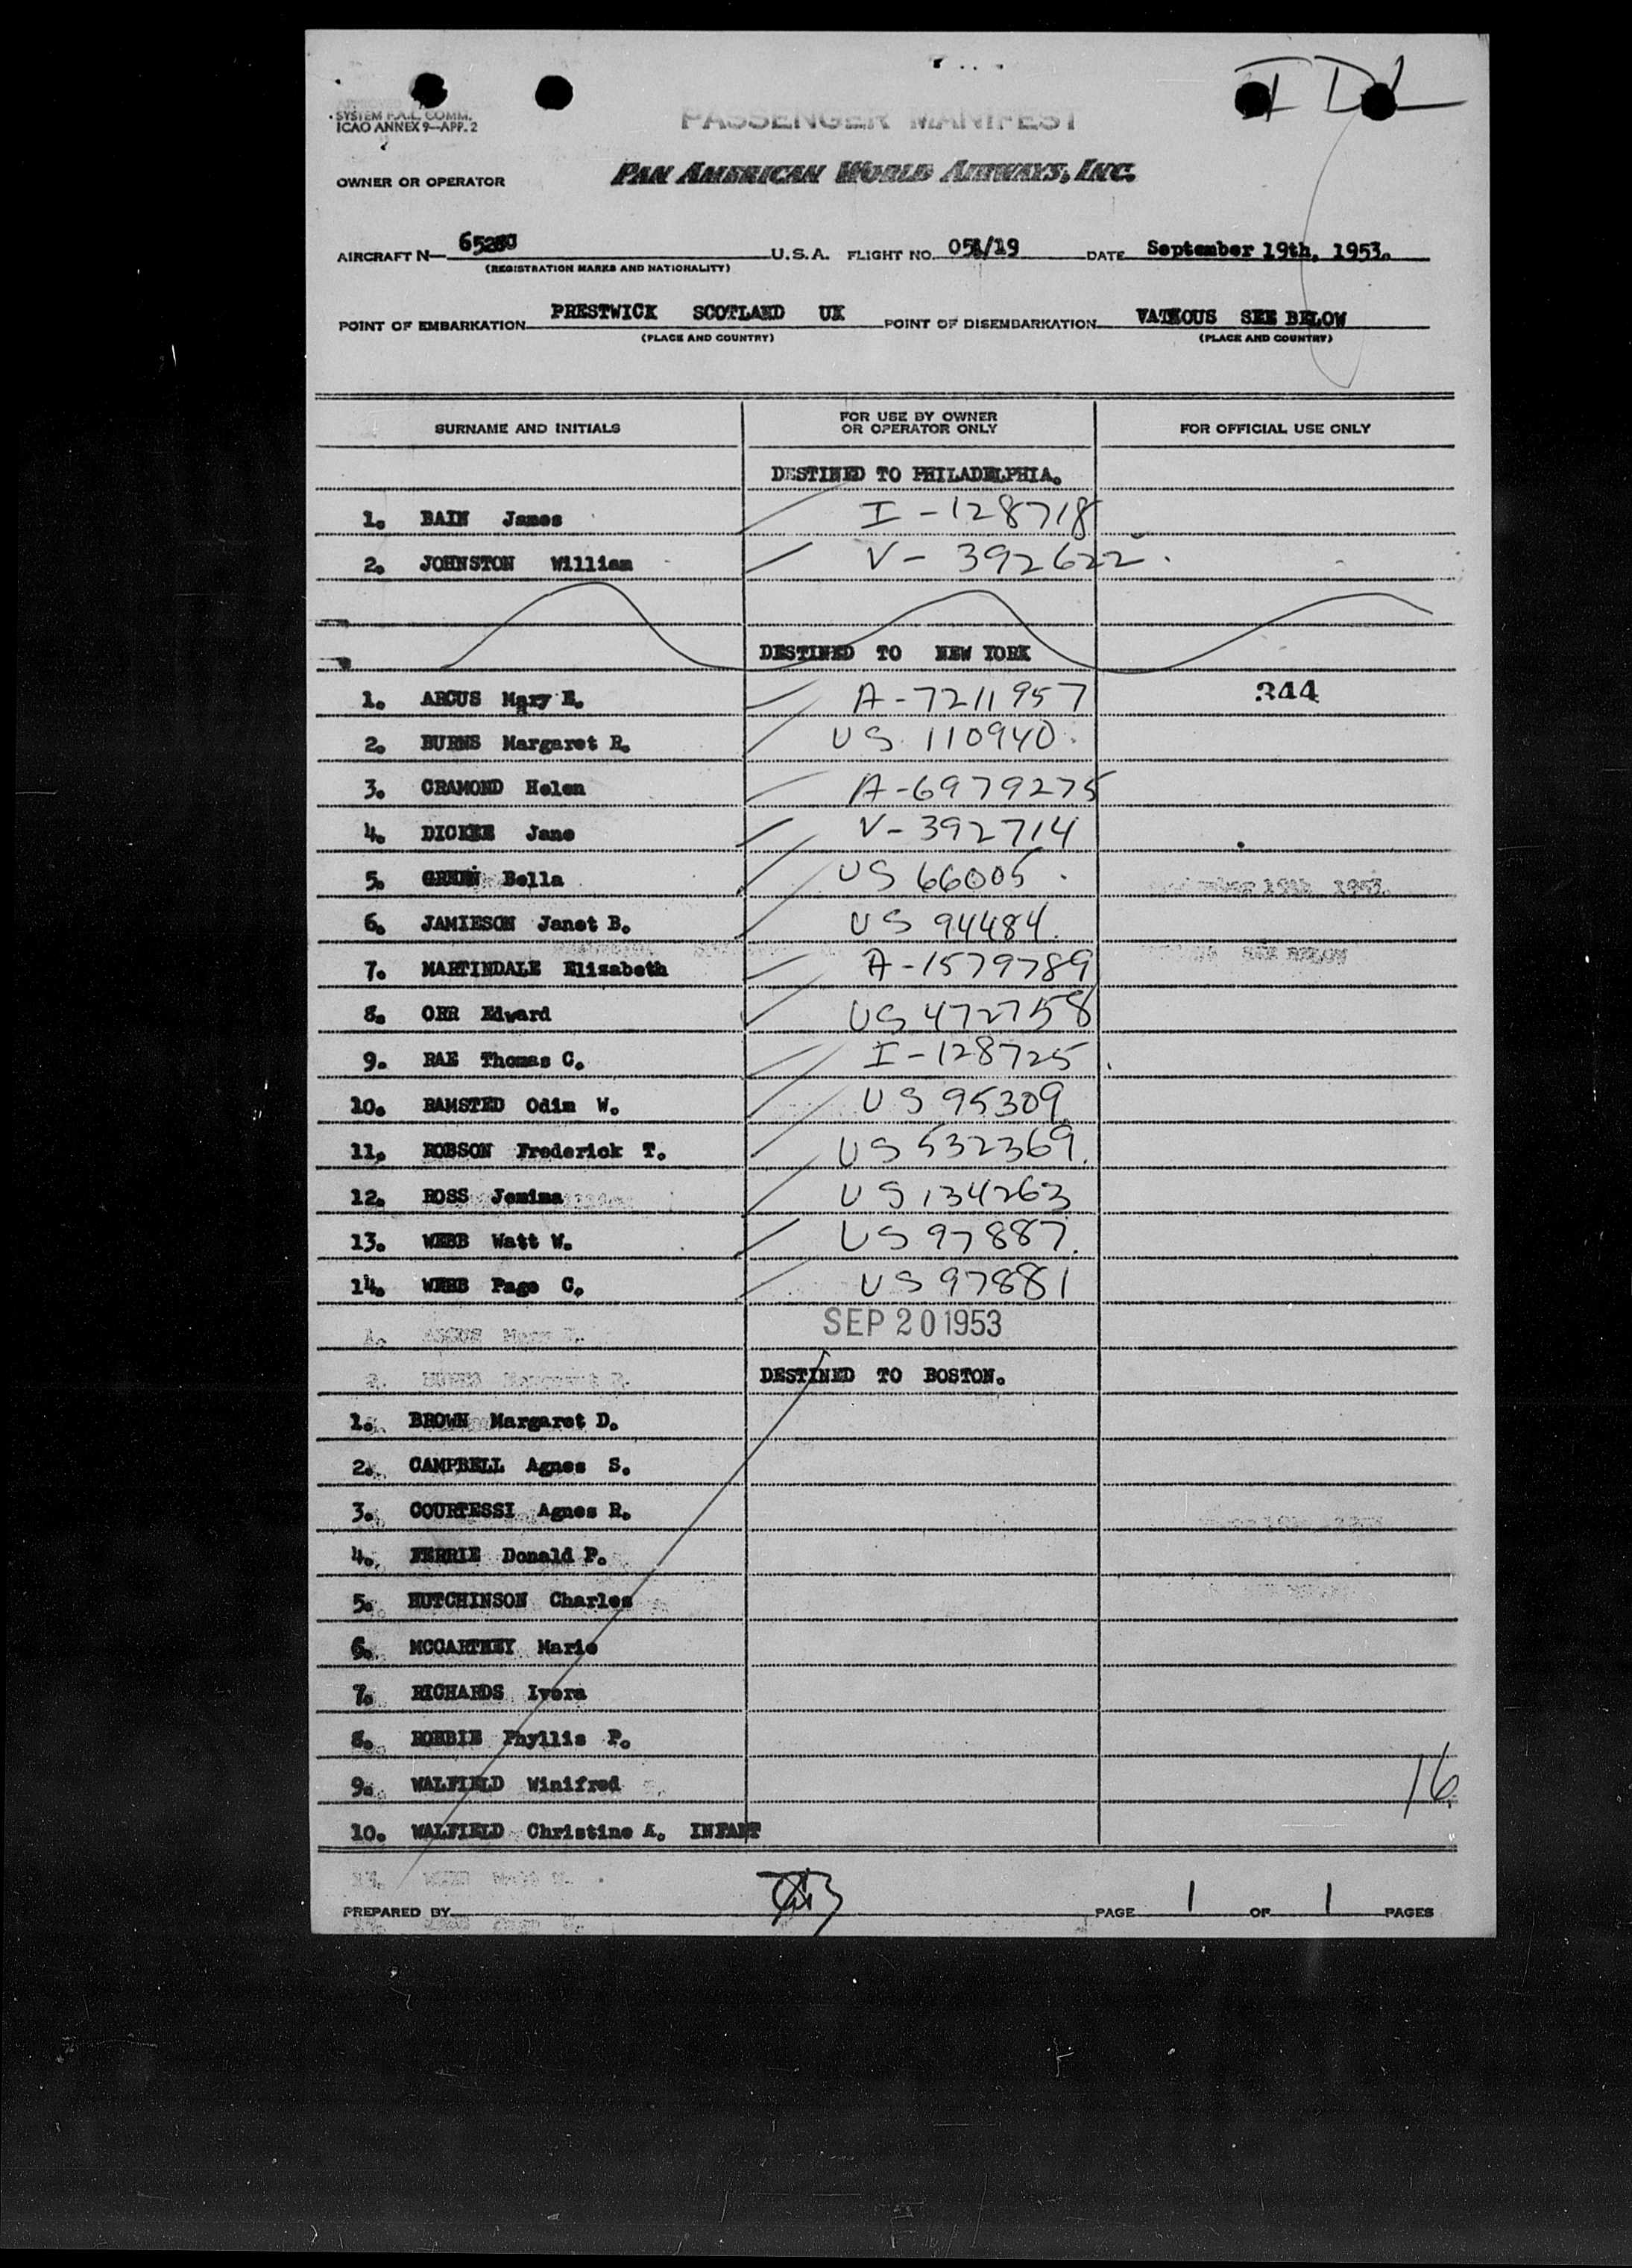 I D L
SYSTEM F.A.L. COMM.
ICAO ANNEX 9—APP. 2
PASSENGER MANIFEST
OWNER OR OPERATOR PAN AMERICAN WORLD AIRWAYS, INC.
AIRCRAFT N— U.S.A. FLIGHT NO. /19 DATE September 19th, 1953.
(REGISTRATION MARKS AND NATIONALITY)
POINT OF EMBARKATION PRESTWICK SCOTLAND UK POINT OF DISEMBARKATION SEE BELOW
(PLACE AND COUNTRY) (PLACE AND COUNTRY)
SURNAME AND INITIALS FOR USE BY OWNER OR OPERATOR ONLY FOR OFFICIAL USE ONLY
DESTINED TO PHILADELPHIA.
1. BAIN James I-128718
2. JOHNSTON William V-392622.
DESTINED TO NEW YORK
1. ARGUS Mary E. A-7211957 344
2. BURNS Margaret R. US 110940.
3. CRAMOND Helen A-6979275
4. DICKIE Jane V-392714
5. GREEN Bella US 66005.
6. JAMIESON Janet B. US 94484.
7. MARTINDALE Elizabeth A-1579789
8. ORR Edward US 472758
9. RAE Thomas C. I-128725.
10. RAMSTED Odin W. US 95309.
11. ROBSON Frederick T. US 532369.
12. ROSS Jemima US 134263
13. WEBB Watt W. US 97887.
14. WEBB Page C. US 97881
SEP 20 1953
DESTINED TO BOSTON.
1. BROWN Margaret D.
2. CAMPBELL Agnes S.
3. COURTESSI Agnes R.
4. FERRIE Donald P.
5. HUTCHINSON Charles
6. MCCARTNEY Marie
7. RICHARDS Ivora
8. ROBBIE Phyllis P.
9. WALFIELD Winifred
16.
10. WALFIELD Christine A. INFANT
PREPARED BY PAGE 1 OF 1 PAGES